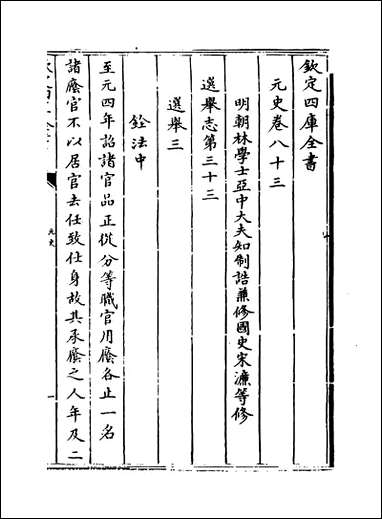 欽定四庫全書
元史卷八十三
明朝林學士亞中大夫知制誥兼修國史宋濂等修
選舉志第三十三
選舉三
銓法中
至元四年詔諸官品正從分等職官用廕各止一名
諸廕官不以居官去任致仕身故其承廕之人年及二
元史
一